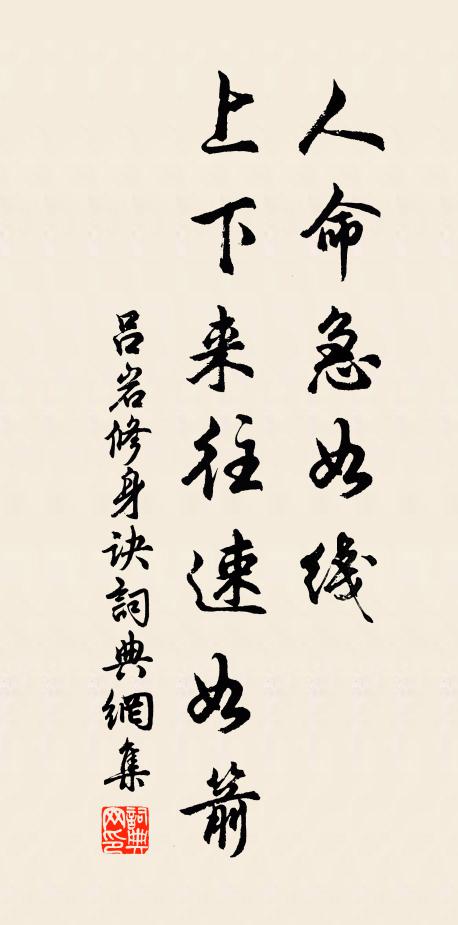 人命急如线
上下来往速如箭
吕岩修身诀詞典網集
詞典网印